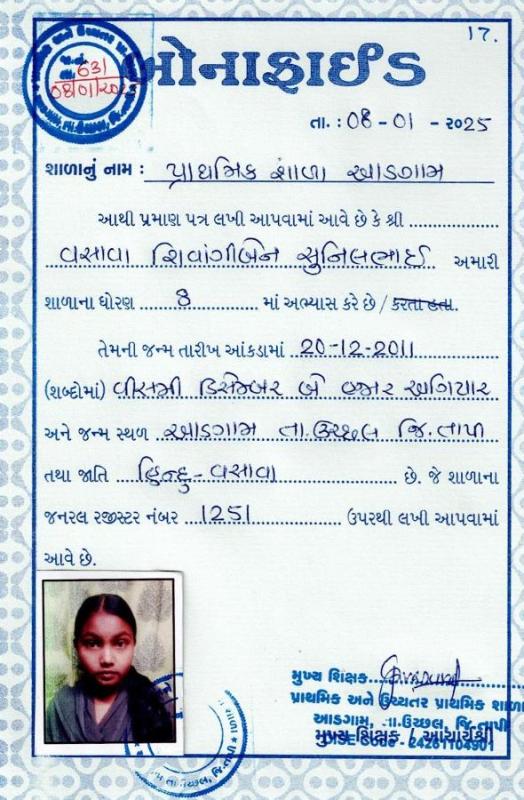 17.
જા.નં. 631
08/01/2025
બોનાફાઈડ
તા. : 08 - 01 - ૨૦25
શાળાનું નામ : પ્રાથમિક શાળા આડગામ
આથી પ્રમાણ પત્ર લખી આપવામાં આવે છે કે શ્રી
વસાવા શિવાંગીબેન સુનિલભાઈ અમારી
શાળાના ધોરણ 8 માં અભ્યાસ કરે છે / કરતા હતા.
તેમની જન્મ તારીખ આંકડામાં 20-12-2011
(શબ્દોમાં) વીસમી ડિસેમ્બર બે હજાર અગિયાર
અને જન્મ સ્થળ આડગામ તા.ઉચ્છલ જિ.તાપી
તથા જાતિ હિન્દુ-વસાવા છે. જે શાળાના
જનરલ રજીસ્ટર નંબર 1251 ઉપરથી લખી આપવામાં
આવે છે.
મુખ્ય શિક્ષક
પ્રાથમિક અને ઉચ્ચતર પ્રાથમિક શાળા
આડગામ, તા.ઉચ્છલ, જિ.તાપી
મુખ્ય શિક્ષક / આચાર્યશ્રી
Code - 24261104901